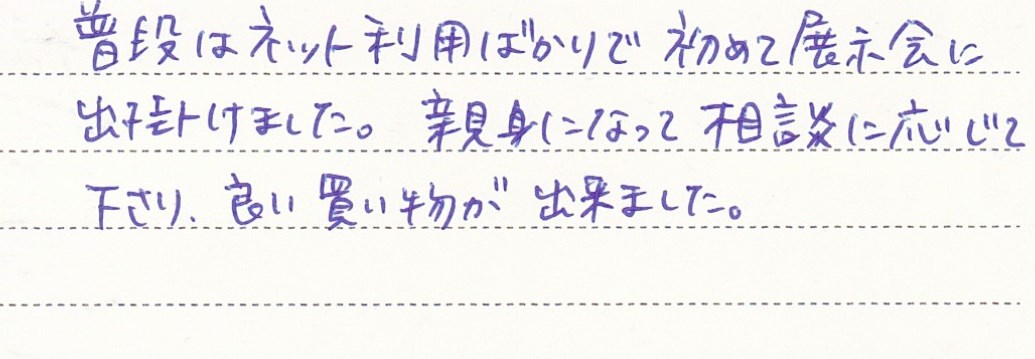 普段はネット利用ばかりで 初めて展示会に
出掛けました。 親身になって 相談に応じて
下さり、良い買い物が 出来ました。